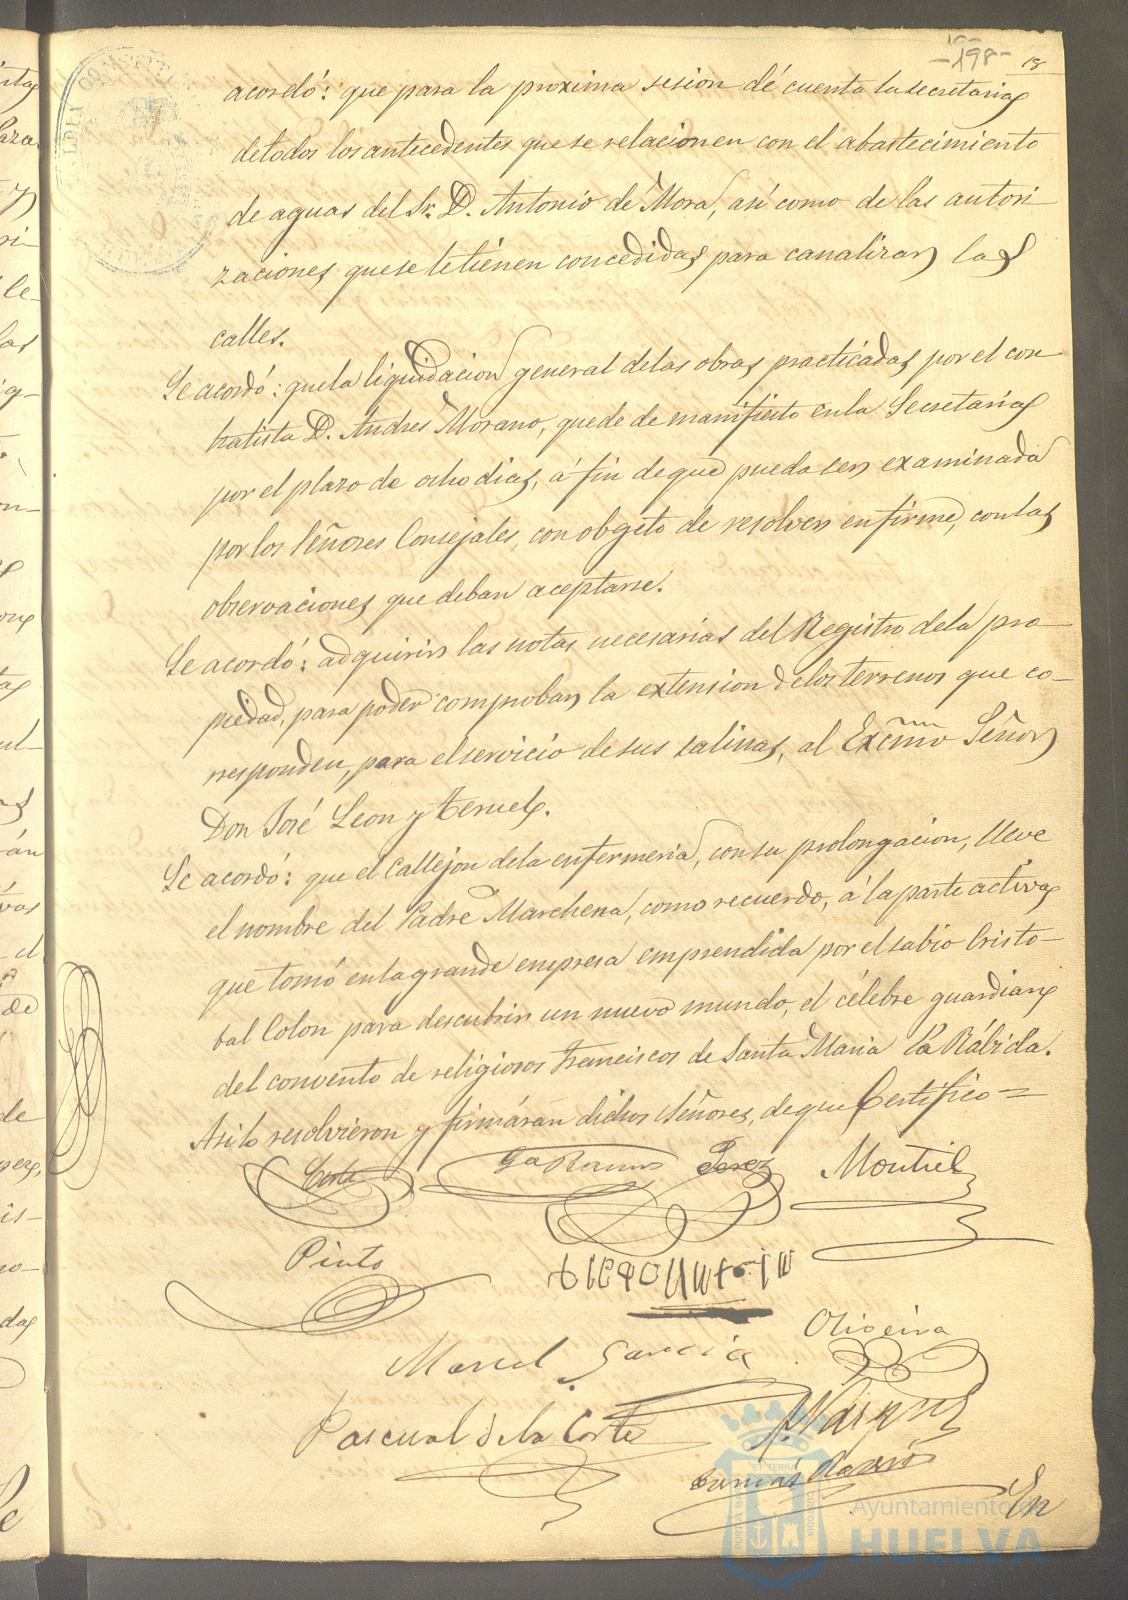 -198- 18
acordó: que para la proxima sesion dé cuenta la secretaria
de todos los antecedentes que se relacionen con el abastecimiento
de aguas del Sr. D. Antonio de Mora, asi como de las autori
zaciones que se le tienen concedidas para canalizar las
calles.
Se acordó: que la liquidacion general de las obras practicadas por el con
tratista D. Andres Morano, quede de manifiesto en la Secretaria
por el plazo de ocho dias, á fin de que pueda ser examinada
por los Señores Consejales, con obgeto de resolver en firme, con las
observaciones que deban aceptarse.
Se acordó: adquirir las notas necesarias del Registro de la pro-
piedad, para poder comprobar la extension de los terrenos que co-
rresponden, para el servicio de sus salinas, al Excmo Señor
Don José Leon y Teruel.
Se acordó: que el callejon de la enfermeria, con su prolongacion, lleve
el nombre del Padre Marchena, como recuerdo, á la parte activa
que tomó en la grande empresa emprendida por el sabio Cristo-
bal Colon para descubrir un nuevo mundo, el célebre guardian
del convento de religiosos Franciscos de Santa Maria la Rábida.
Asi lo resolvieron y firmáran dichos Señores, de que Certifico=
Corte Ga Ramos Perez Montiel
Pinto
Oliveira
Manuel Garcia
Pascual de la Corte A. Vazquez
Tomás
En
Ayuntamiento de
HUELVA